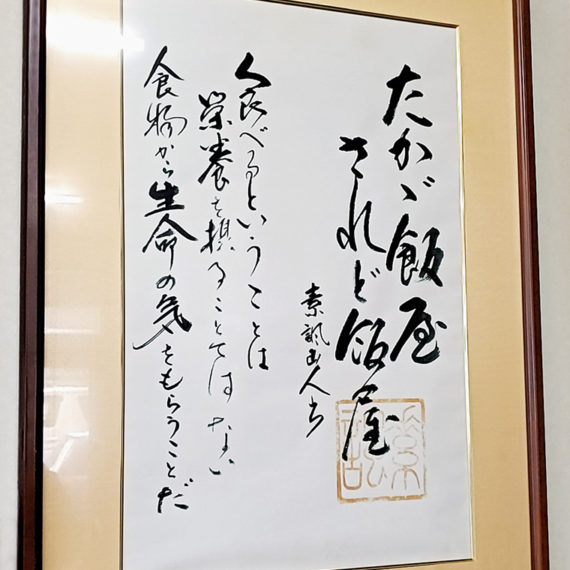 たかゞ飯屋
されど飯屋
素颯山人書
食べるということは
栄養を摂ることではない
食物から生命の気をもらうことだ